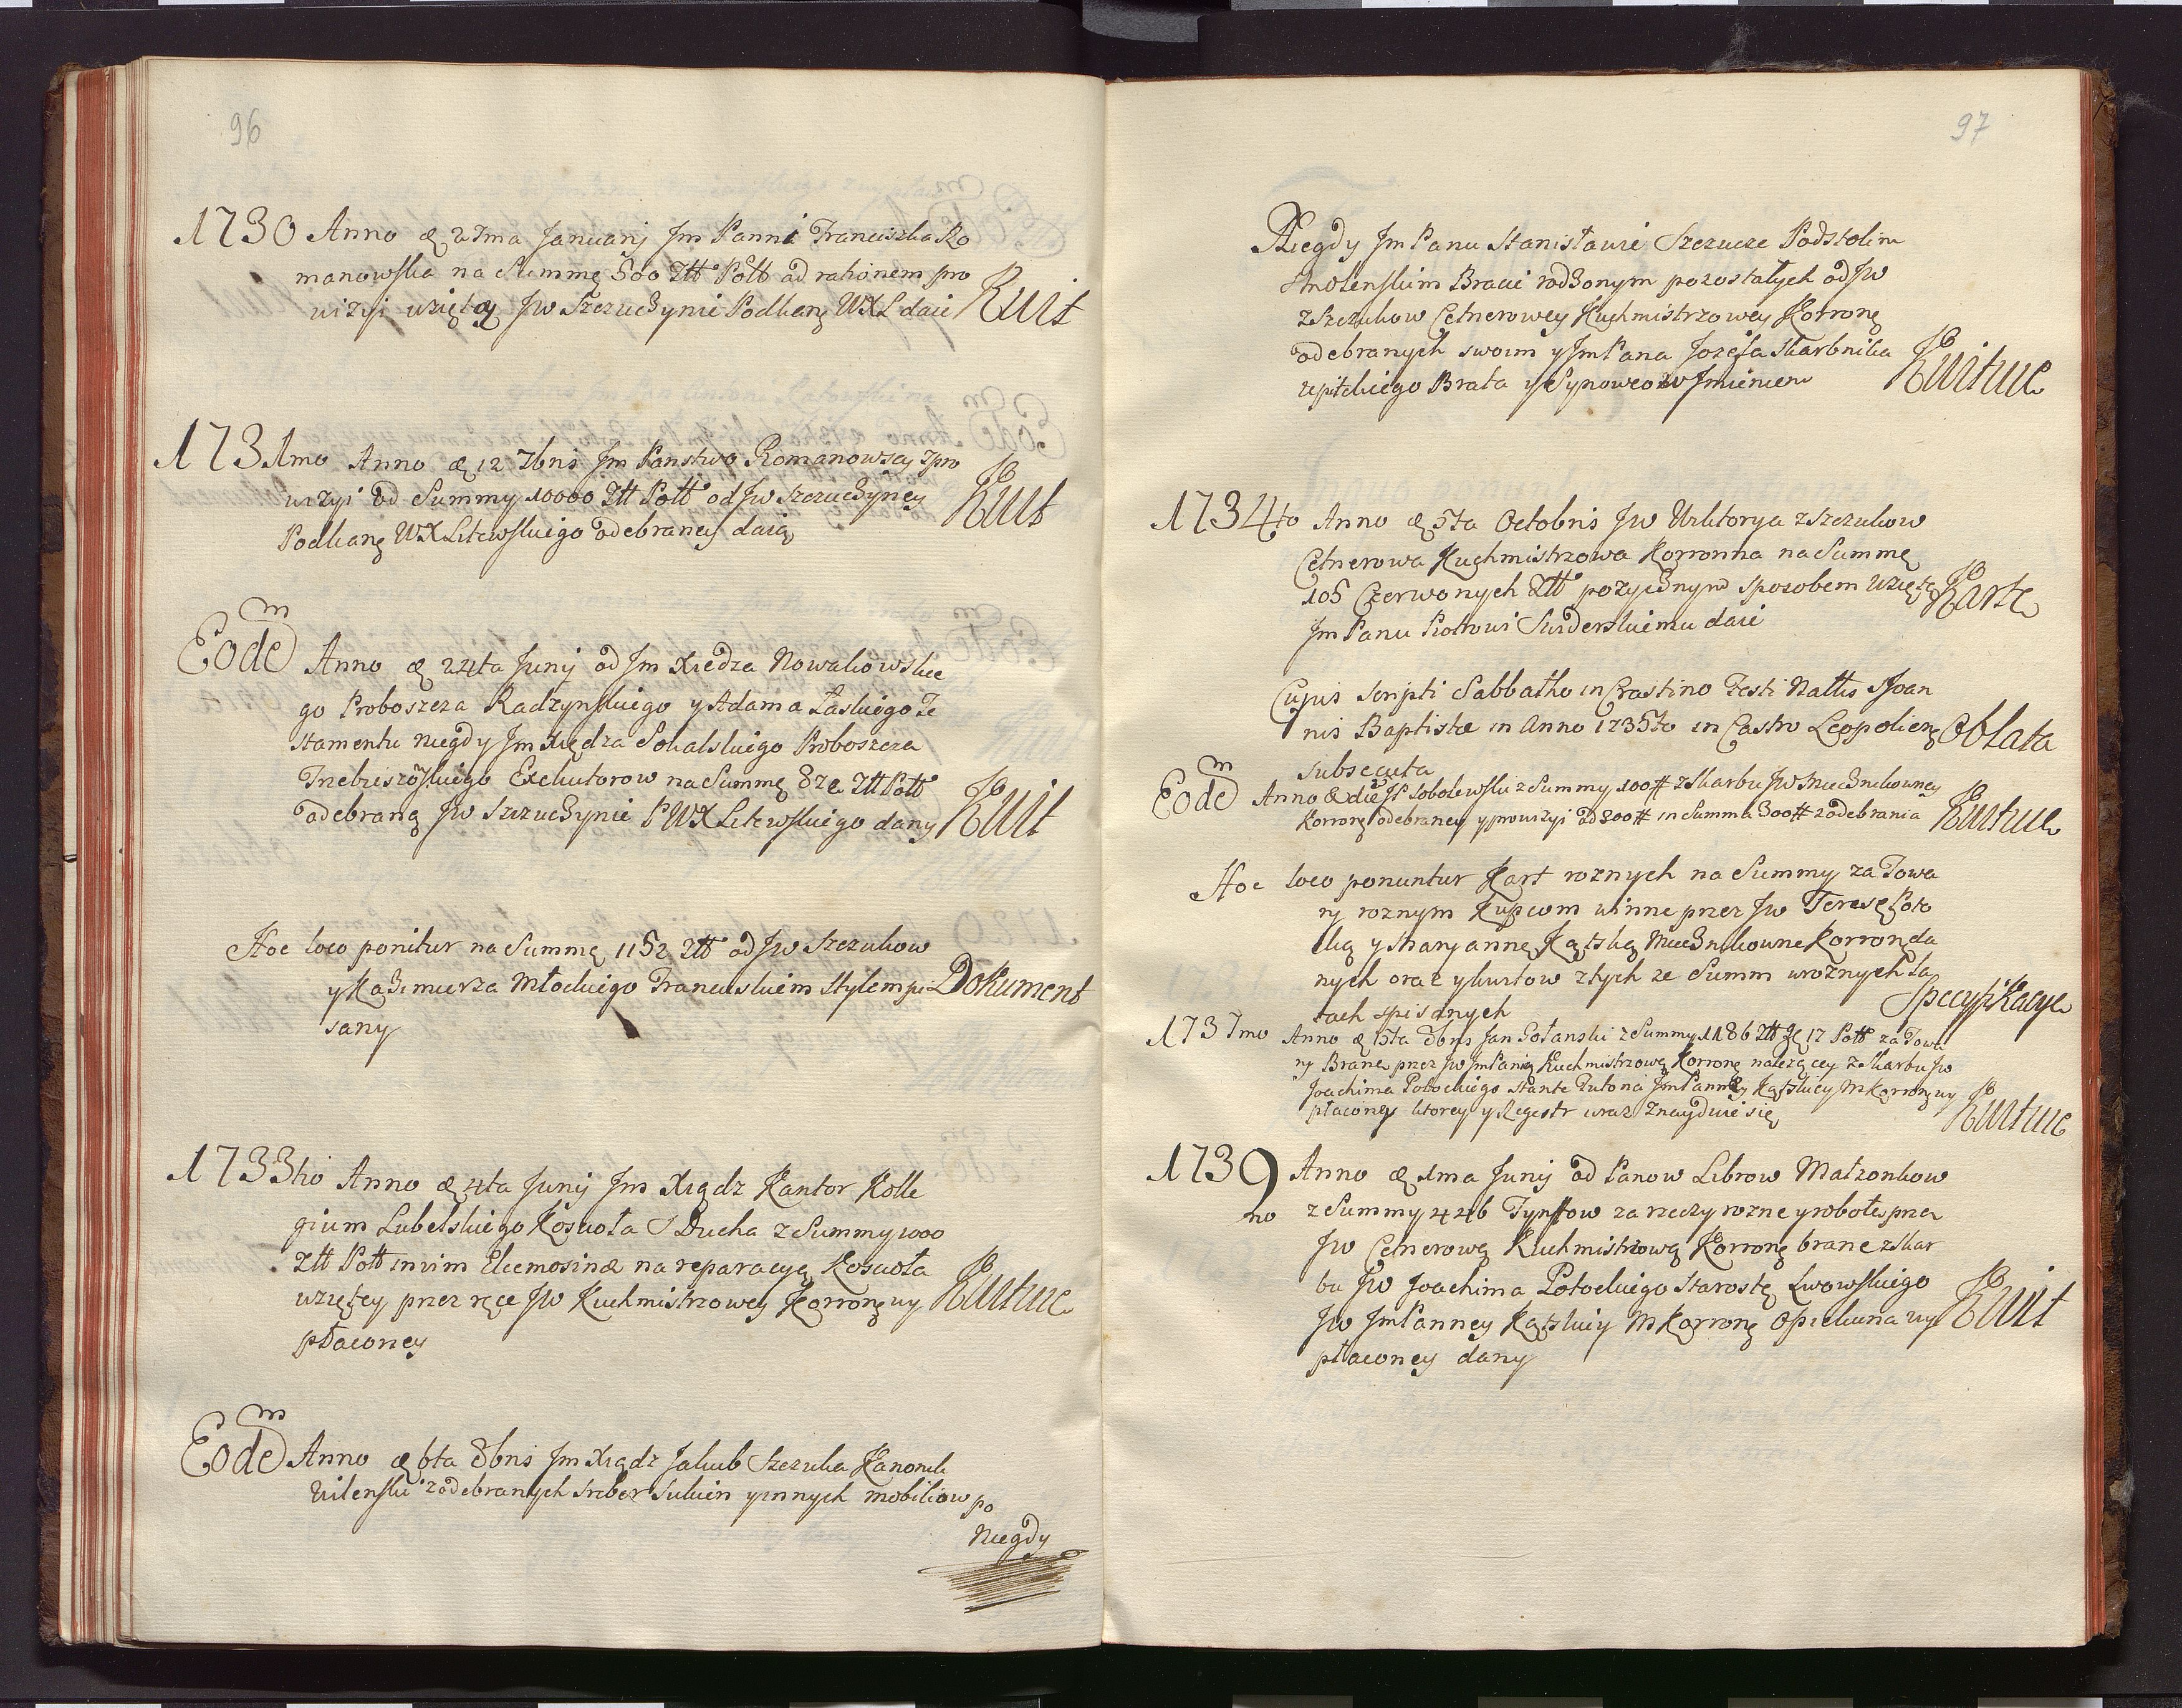 96
1730 Anno & 27ma Januarij Jm Panna Franciszka Ro
manowska na Summę 500 Ztt Poltt ad rationem pro
wizyi wziętą Jw Szczuczynie Podkanę WXL daie Kwit
1731mo Anno & 12 7bris Jm Panstwo Romanowscy z pro
wizyi od Summy 10000 Ztt Poltt od Jw Szczuczyney
Podkanę WXLitewskiego odebraney daią Kwit
Eodem Anno & 24ta Junij od Jm Xiedza Nowakowskie
go Proboszcza Radzynskiego y Adama Łaskiego Te
stamentu niegdy Jm Xiędza Sokalskiego Proboszcza
Trebieszowskiego Exekutorow na Summę Ztt Poltt
odebraną Jw Szczuczynie PWXLitewskiego dany Kwit
Hoc loco ponitur na Summę 1152 Ztt od Jw Szczukow
y Kazimierza Młockiego Francuskiem Stylem pi Dokument
sany
1733tio Anno & 4ta Junij Jm Xiądz Kantor Kolle
gium Lubelskiego Koscioła S Ducha z Summy 1000
Ztt Poltt in vim Eleemosinæ na reparacyą Koscioła
wziętey przez ręce Jw Kuchmistrzowey Korronę wy Kwituie
płaconey
Eodem Anno & 6ta 8bris Jm Xiądz Jakub Szczuka Kanonik
Wilenski z odebranych Sreber Sukien y innych mobiliow po
Niegdy
97
Niegdy Jm Panu Stanisławie Szczuce Podstolim
Smolenskim Braci rodzonym pozostałych od Jw
z Szczukow Cetnerowey Kuchmistrzowey Korronę
odebranych swoim y Jm Pana Jozefa Skarbnika
repitckiego Brata y Synowcow Imieniem Kwituie
1734to Anno & 5ta Octobris Jw Wiktorya z Szczukow
Cetnerowa Kuchmistrzowa Korronna na Summę
105 Czerwonych Ztt pożyczdnym sposobem wziętą Kartę
Jm Panu Piotrowi Swiderskiemu daie
Cujus scripti Sabbatho in Crastino Festi Nattis S Joan
nis Baptistæ in Anno 1735to in Castro Leopoliens Oblata
subsecuta
Eodem Anno & die JP Sobolewski z Summy 100# z Skarbu Jw Miecznikowney
Korronę odebraney y prowizyi od 200# in Summa 300# z odebrania Kwituie
Hoc loco ponuntur Kart roznych na Summy za Towa
ry roznym Kupcom winne przez Jw Teresę Poto
cką y Maryannę Kątską Miecznikowne Korronę da
nych oraz y kwitow z tych ze Summ w rożnych la
tach spisanych Specyfikacye
1737mo Anno & 15ta 8bris Jan Gołanski z Summy 1186 Ztt gr 17 Poltt za Towa
ry Brane przez Jw Jm Panią Kuchmistrzową Korronę nalezącey z Skarbu Jw
Joachima Potockiego stante Tutoria Jm Panny Kątskiey M Korronę wy
płaconey ktorey y Regestr wraz znayduie się Kwituie
1739no Anno & 1ma Junij od Panow Librow Małzonkow
z Summy 4246 Tynffow za rzeczy rozne y robote prze
Jw Cetnerową Kuchmistrzową Korronę brane z Skar
bu Jw Joachima Potockiego Starostę Lwowskiego
Jw Jm Panney Kątskiey M Korronę Opiekuna wy Kwit
płaconey dany